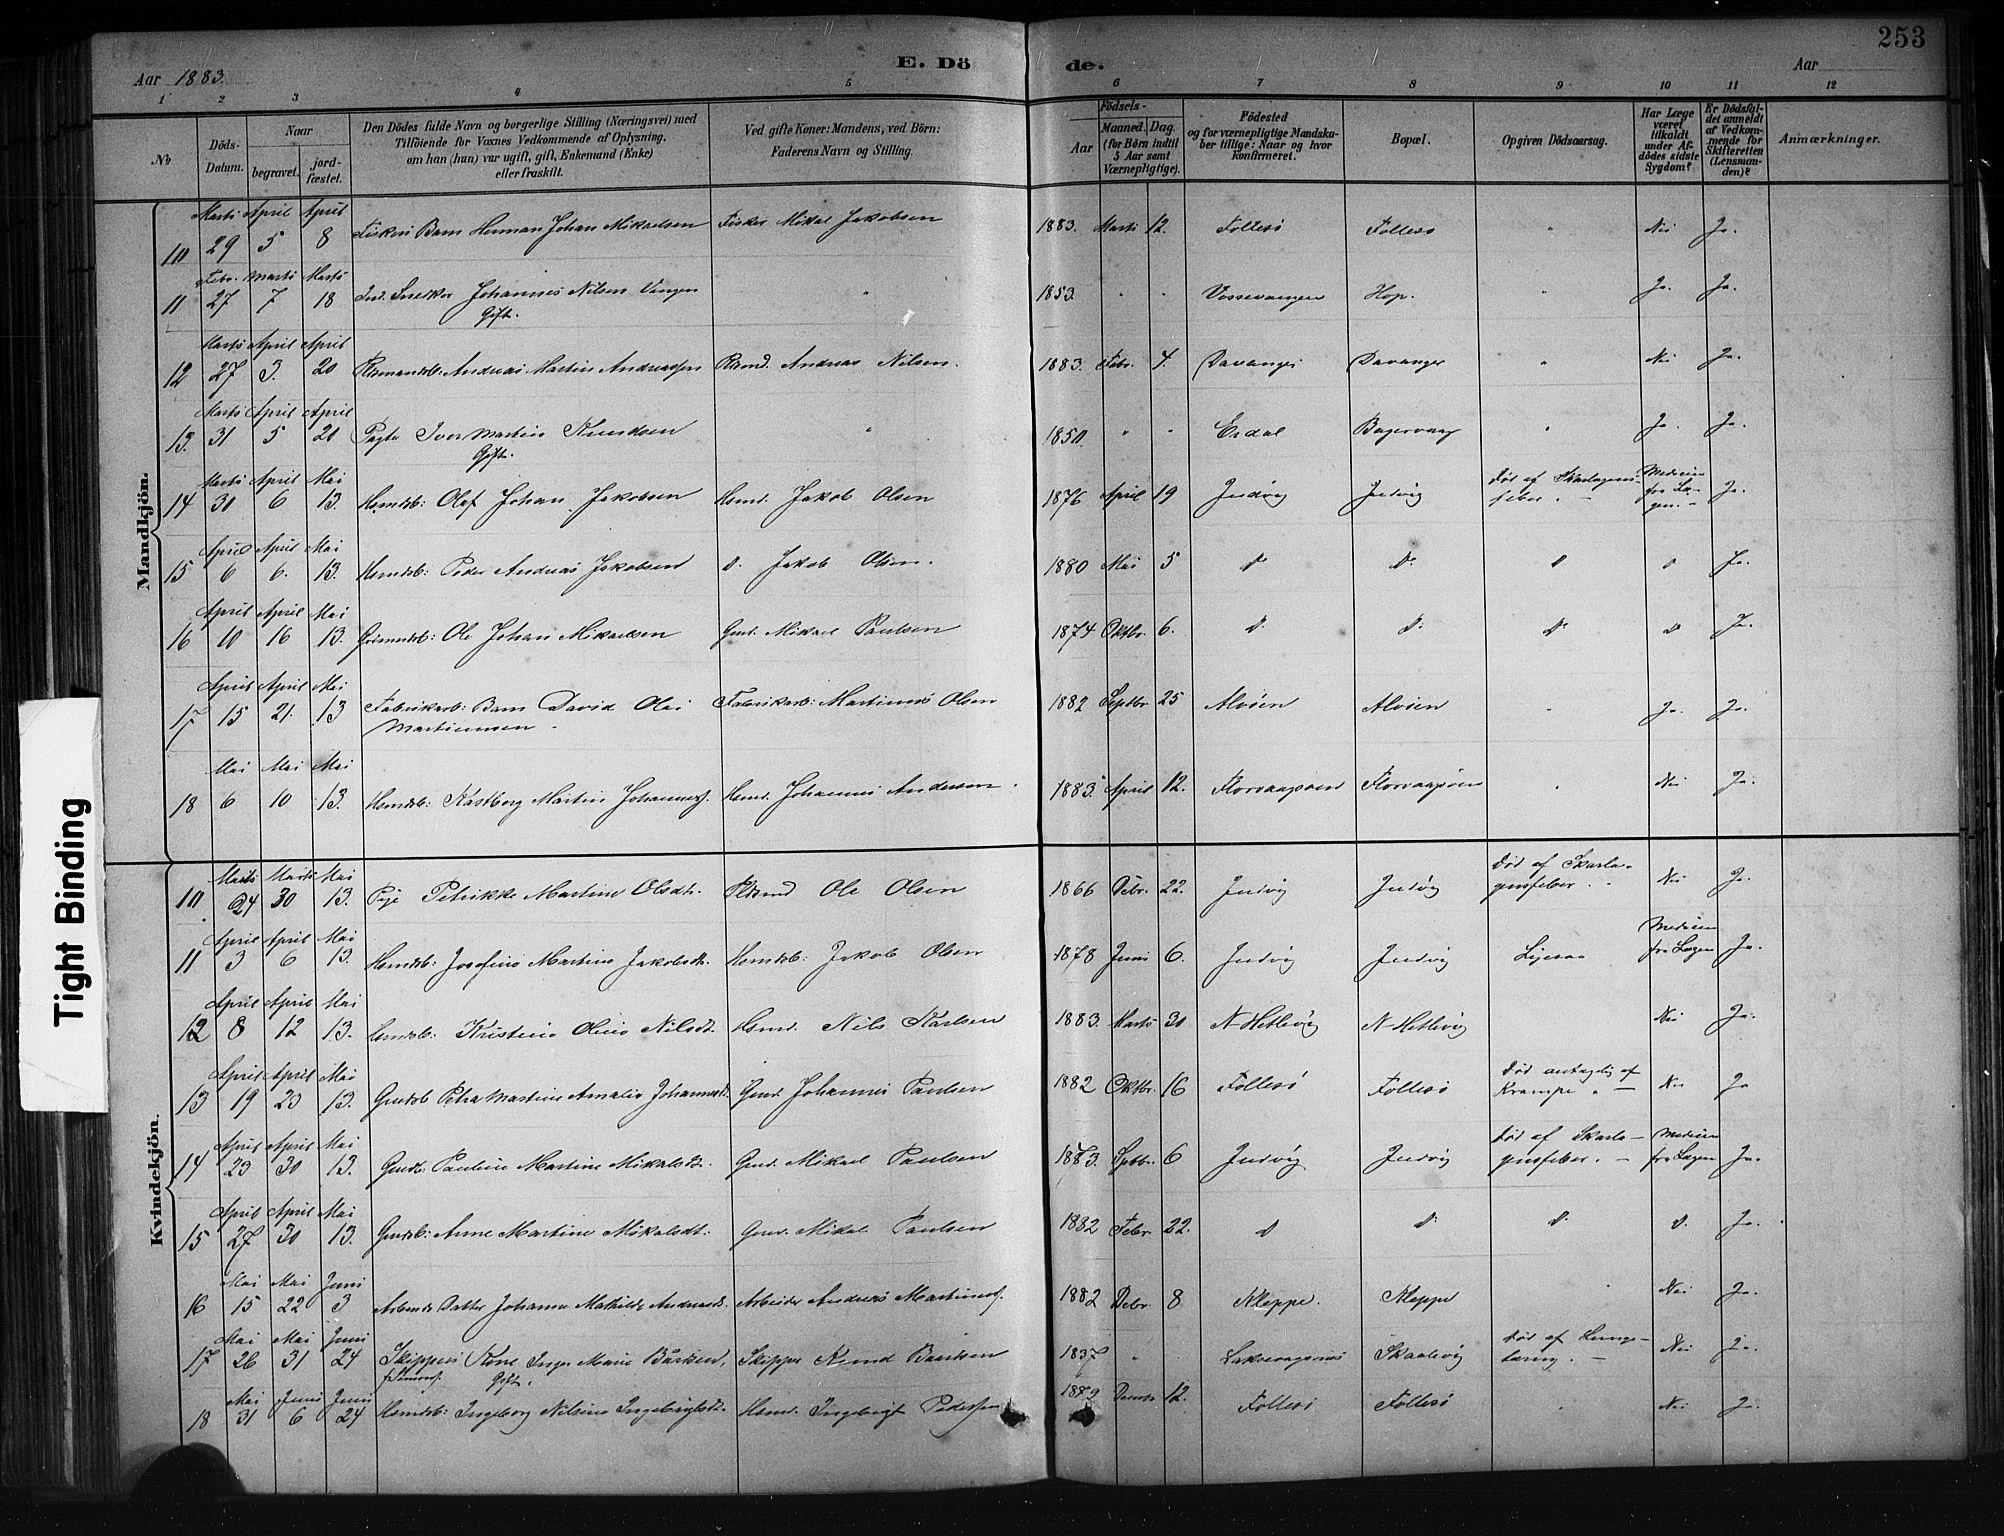 253
E. Dö de.
Aar 1883.
Aar
1 2 3 4 5 6 7 8 9 10 11 12
No
Döds-Datum.
Naar
begravet.
jord-fæstet.
Den Dödes fulde Navn og borgerlige Stilling (Næringsvei) med
Tilföiende for Voxnes Vedkommende af Oplysning,
om han (hun) var ugift, gift, Enkemand (Enke)
eller fraskilt.
Ved gifte Koner: Mandens, ved Börn:
Faderens Navn og Stilling.
Födsels-
Aar
Maaned. Dag.
(for Börn indtil
5 Aar samt
Værnepligtige).
Födested
og for værnepligtige Mandska-
ber tillige: Naar og hvor
konfirmeret.
Bopæl.
Opgiven Dödsaarsag.
Har Læge
været
tilkaldt
under Af-
dödes sidste
Sygdom?
Er Dödsfal-
det anmeldt
af Vedkom-
mende for
Skifteretten
(Lensman-
den)?
Anmærkninger.
Mandkjön.
10 Marts 29 April 5 April 8 Fiskers Barn Herman Johan Mikaelsen Fisker Mikal Jakobsen 1883. Marts 12. Follesö Follesö " Nei Ja.
11 Febr. 27 Marts 7 Marts 18 Ind. Snedker Johannes Nilsen Vangen " 1853. " " Vossevangen Hop. " Ja. Ja.
Gift.
12 Marts 27 April 3. April 20 Andreas Martin Andreassen Andreas Nilsen. 1883. Febr. 4. Davanger Davanger " Nei Ja.
13. Marts 31 April 5 April 20 Iver Martin Knudsen " 1850. " " Erdal " Ja. Ja.
Gift.
14 Marts 30 April 6 Mai 13. Hsmdsb: Olaf Johan Jakobsen Hsmd. Jakob Olsen 1876 April 19 Indvig Indvig Död af Skarlagens-
feber. Medicin
fra Læ-
gen. Ja.
15 April 6 April 6. Mai 13. Hsmdsb: Peder Andreas Jakobsen D. Jakob Olsen. 1880 Mai 5 D. D. D D Ja.
16 April 10 April 16 Mai 13. Ole Johan Mikaelsen Gmd. Mikael Paulsen 1874 Oktbr. 6. D. D. D. D Ja.
17 April 15 April 21. Mai 13 Fabrikarb: Barn David Olai
Martinussen Fabrikarb: Martinus Olsen 1882 Septbr. 25 Alvöen Alvöen " Ja. Ja.
18 Mai 6 Mai 10 Mai 13. Hsmdsb: Martin Hsmd. Johannes Andersen 1883. April 12. Florvaagöen Florvaagöen " Nei Ja.
Kvindekjön.
10 Marts 24 Marts 30 Mai 13. Pige Petrikke Martine Olsdt. Ole Olsen 1866 Debr. 22. Indvig Indvig Död af Skarla-
gensfeber. Nei Ja.
11 April 3 April 6 Mai 13. Hsmdsb: Josefine Martine Jakobsdt. Hsmdsb: Jakob Olsen 1878 Juni 6. Indvig Indvig Ligesaa Medicin
fra Lægen Ja.
12 April 8 April 12 Mai 13. Hsmdsb: Kristine Oline Nilsdt. Hsmd. Nils Karlsen 1883. Marts 30 N-Hetlevig N-Hetlevig Nei Ja.
13 April 19 April 23 Mai 13. Gmdsb Petra Martine Amalie Johannesdt. Gmd. Johannes Paulsen 1882 Oktbr. 16 Follesö Follesö Död antagelig af
Krampe. Nei Ja
14 April 23 April 30 Mai 13. Pauline Martine Mikalsdt. Gmd. Mikael Paulsen 1873. Sptbr. 6 Indvig Indvig Död af Skarla-
gensfeber. Medicin
fra Lægen Ja.
15 April 27 April 30 Mai 13. Gmdsb: Anne Martine Mikalsdt. Gmd. Mikal Paulsen 1882 Febr. 22. D D. D. D. Ja.
16 Mai 15 Mai 22 Juni 3 Arbeids Datter Johanne Mathilde Andreasdt. Arbeider Andreas 1882 Debr. 8 Kleppe. Kleppe Nei Ja.
17 Mai 26 Mai 31 Juni 24 Skippers Kone Inger Marie Skipper Knud 1837 " Laksevaagsnes Skaalevig Död af Lunge-
tæring. Nei Ja.
Gift.
18 Mai 31 Juni 6 Juni 24 Hsmdsb: Ingeborg Nilsine Ingebrigtsdt. Hsmd. Ingebrigt Pedersen 12. Follesö Follesö " Nei Ja.
Tight Binding